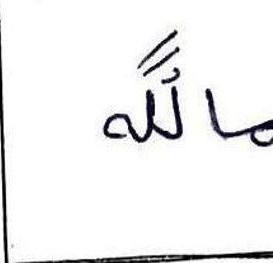 ما لله